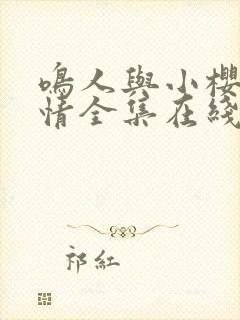 鳴人與小櫻
情全集在綫
祁紅